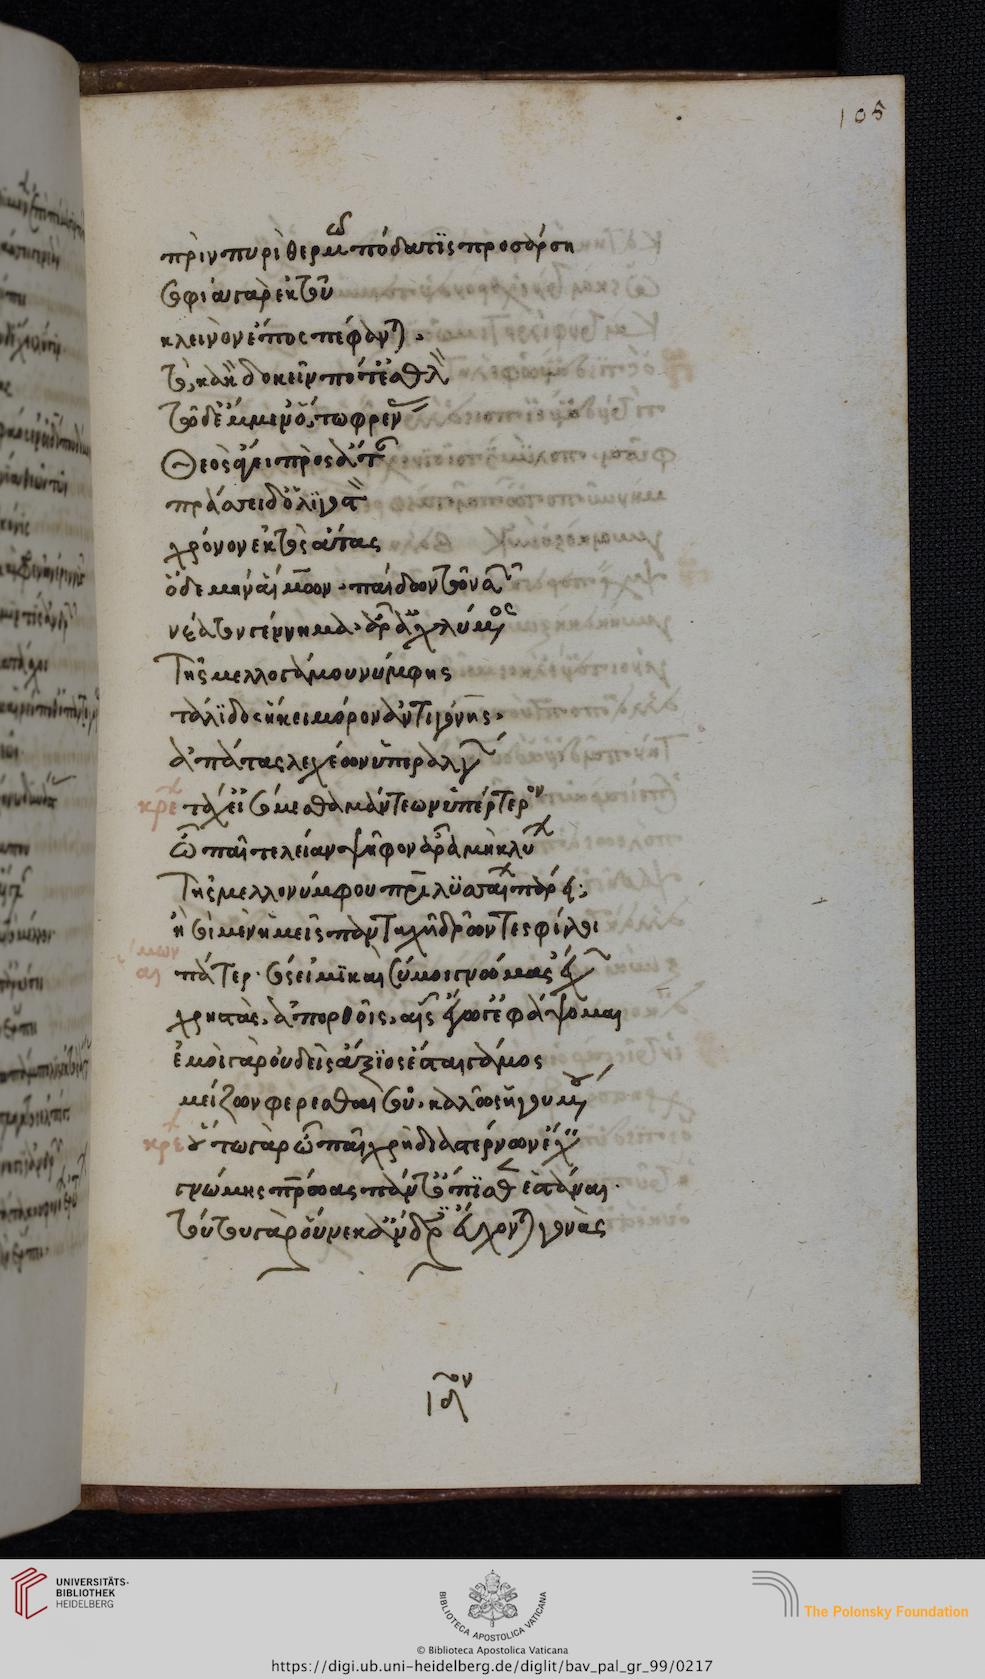 105
πρὶν πυρὶ θερμῷ πόδα τὶς προσάρσῃ
σοφία γὰρ ἐκ του
κλεινὸν ἔπος πέφανται.
τὸ κακὸν δοκεῖν ποτ' ἐσθλὸν
τῶδ' ἔμμεν ὅτω φρένας
Θεὸς ἄγει πρὸς ἄταν
πράσσει δ' ὀλίγιστον
χρόνον ἐκτὸς ἄτας
ὅδε μὴν αἵμων. παίδων τῶν σῶν
νέατον γέννημα. ἆρ' ἀχνύμενος
Τῆς μελλογάμου νύμφης
τάλιδος ἥκει μόρον ἀντιγόνης.
ἀπάτας λεχέων ὑπεραλγῶν
κρε τάχ' εἰσόμεσθα μάντεων ὑπέρτερον
ὦ παῖ τελείαν ψῆφον ἆρα μὴ κλύων
Τῆς μελλονύμφου πατρὶ λυσσαίνων πάρει;
ἢ σοὶ μὲν ἡμεῖς πανταχῆ δρῶντες φίλοι
αἵμων
πάτερ. σός εἰμι καὶ σύ μοι γνώμας ἔχων
χρηστὰς. ἀπορθοῖς. αἷς ἔγωγ' ἐφάψομαι
ἐμοὶ γὰρ οὐδεὶς ἄξιος ἔσται γάμος
μείζων φέρεσθαι σοῦ. καλῶς ἡγουμένου
κρε οὕτω γὰρ ὦ παῖ χρὴ διὰ στέρνων ἔχειν
γνώμης πατρώας πάντ' ὄπισθεν ἑστάναι.
τούτου γὰρ οὕνεκ' ἄνδρες εὔχονται γονὰς
UNIVERSITÄTS-
BIBLIOTHEK
HEIDELBERG
BIBLIOTECA APOSTOLICA VATICANA
The Polonsky Foundation
© Biblioteca Apostolica Vaticana
https://digi.ub.uni-heidelberg.de/diglit/bav_pal_gr_99/0217